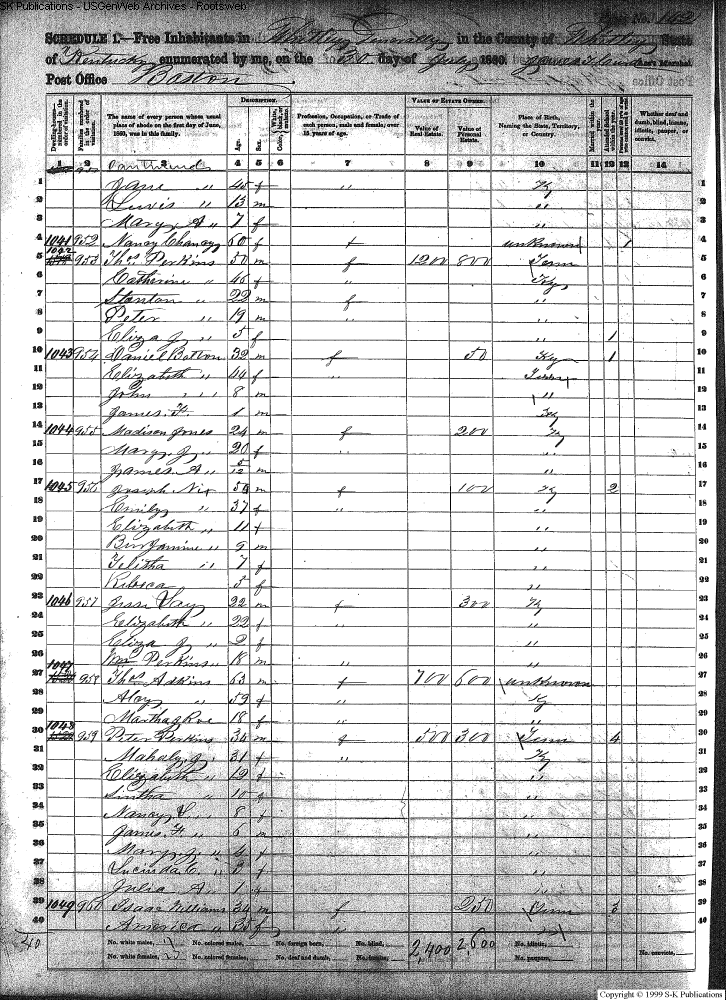 SK Publications - USGenWeb Archives - Rootsweb
Page No. 142
SCHEDULE 1.—Free Inhabitants in Whitley Generally in the County of Whitley State
of Kentucky enumerated by me, on the 30 day of July 1860.
Post Office Boston
DESCRIPTION. VALUE OF ESTATE OWNED.
Dwelling-houses—numbered in the order of visitation. Families numbered in the order of visitation. The name of every person whose usual place of abode on the first day of June, 1860, was in this family. Age. Sex. White, black, or mulatto. Color Profession, Occupation, or Trade of each person, male and female, over 15 years of age. Value of Real Estate. Value of Personal Estate. Place of Birth, Naming the State, Territory, or Country. Married within the year. Attended School within the year. Whether deaf and dumb, blind, insane, idiotic, pauper, or convict.
1 2 3 4 5 6 7 8 9 10 11 12 13 14
1 Jane " 45 f " Ky 1
2 Lewis " 13 m " 2
3 Mary A " 7 f " 3
4 1041 952 Nancy Chanay 60 f f unknown 1 4
5 1042 953 Thos Perkins 50 m f 1200 800 Tenn 5
6 Catherine " 46 f " Ky 6
7 Stanton " 22 m f " 7
8 Peter " 19 m " " 8
9 Eliza J " 5 f " 1 9
10 1043 954 Daniel 32 m f 50 Ky 1 10
11 Elizabeth " 44 f " Tenn 11
12 John " 8 m " 12
13 James F. 1 m Ky 13
14 1044 955 Madison Jones 24 m f 200 Ky 14
15 Mary J " 20 f " " 15
16 James A " 5/12 m " 16
17 1045 956 Josiah Nix 54 m f 100 Ky 2 17
18 Emily " 37 f " " 18
19 Elizabeth " 11 f " 19
20 Benjamine " 9 m " 20
21 Telitha " 7 f " 21
22 Rebeca 5 f " 22
23 1046 957 Jesse 22 m f 300 Ky 23
24 Elizabeth " 22 f " " 24
25 Eliza J " 2 f " 25
26 Wm Perkins " 18 m " " 26
27 1047 958 Thos Adkins 63 m f 700 600 unknown 27
28 Alay " 59 f " Ky 28
29 Martha J Roe 18 f " " 29
30 1048 959 Peter Perkins 34 m f 500 300 Tenn 4 30
31 Mahaly " 31 f " Ky 31
32 Elizabeth " 12 f " 32
33 Sintha " 10 f " 33
34 Nancy " 8 f " 34
35 James H " 6 m " 35
36 Mary J " 4 f " 36
37 Lucinda C. " 3 f " 37
38 Julia A " 1 f " 38
39 1049 960 Isaac Williams 34 m f 250 Tenn 3 39
40 America " 35 f " 40
40 No. white males, No. colored males, No. foreign born, No. blind, 2,400 2,600 No. idiotic,
No. white females, No. colored females, No. deaf and dumb, No. insane, No. paupers, No. convicts,
Copyright © 1999 S-K Publications